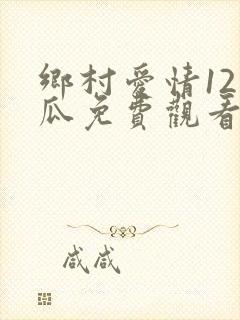 鄉村愛情12
瓜免費觀看
咸咸